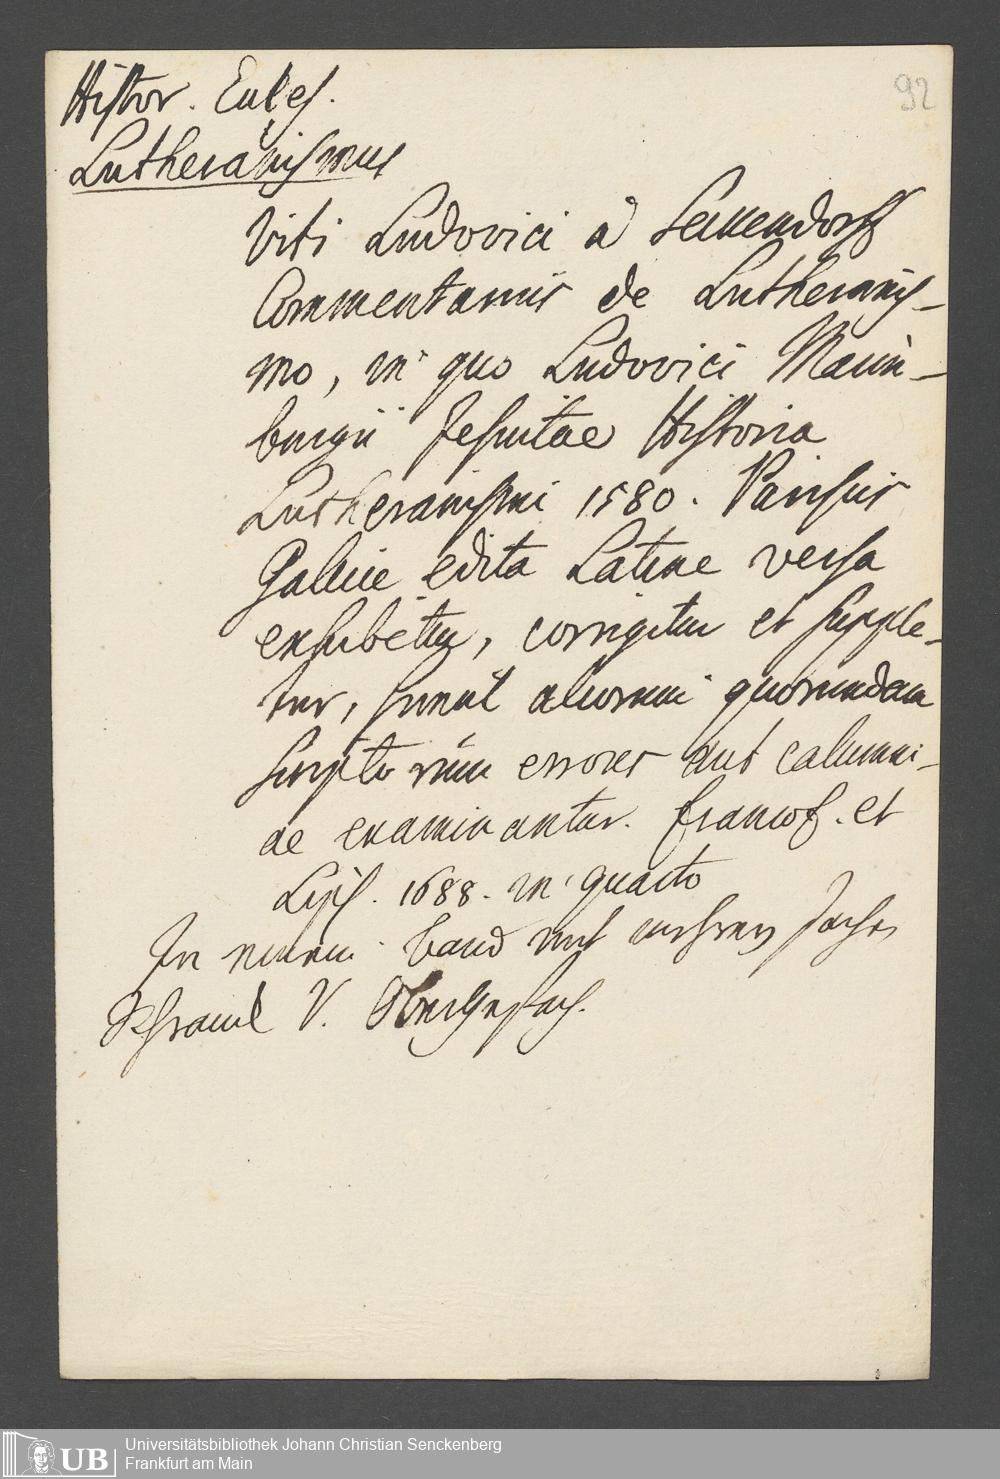 Histor. Eccles.
92
Lutheranismus
Viti Ludovici a Seckendorff
Commentarius de Lutheranis-
mo, in quo Ludovici Maim-
burgii Jesuitae Historia
Lutheranismi 1580. Parisiis
Gallice edita Latine versa
exhibetur, corrigitur et supple-
tur, simul aliorum quorumdam
scriptorum errores aut calumni-
ae examinantur. Francof. et
Lips. 1688. in quarto
In einem Band mit
Schranck V.
UB
Universitätsbibliothek Johann Christian Senckenberg
Frankfurt am Main